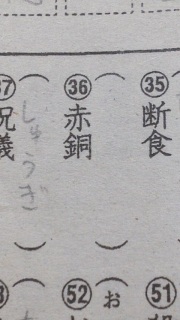 ㉟ 断食
㊱ 赤銅
しゅうぎ
㊲ 祝儀
51
52 お